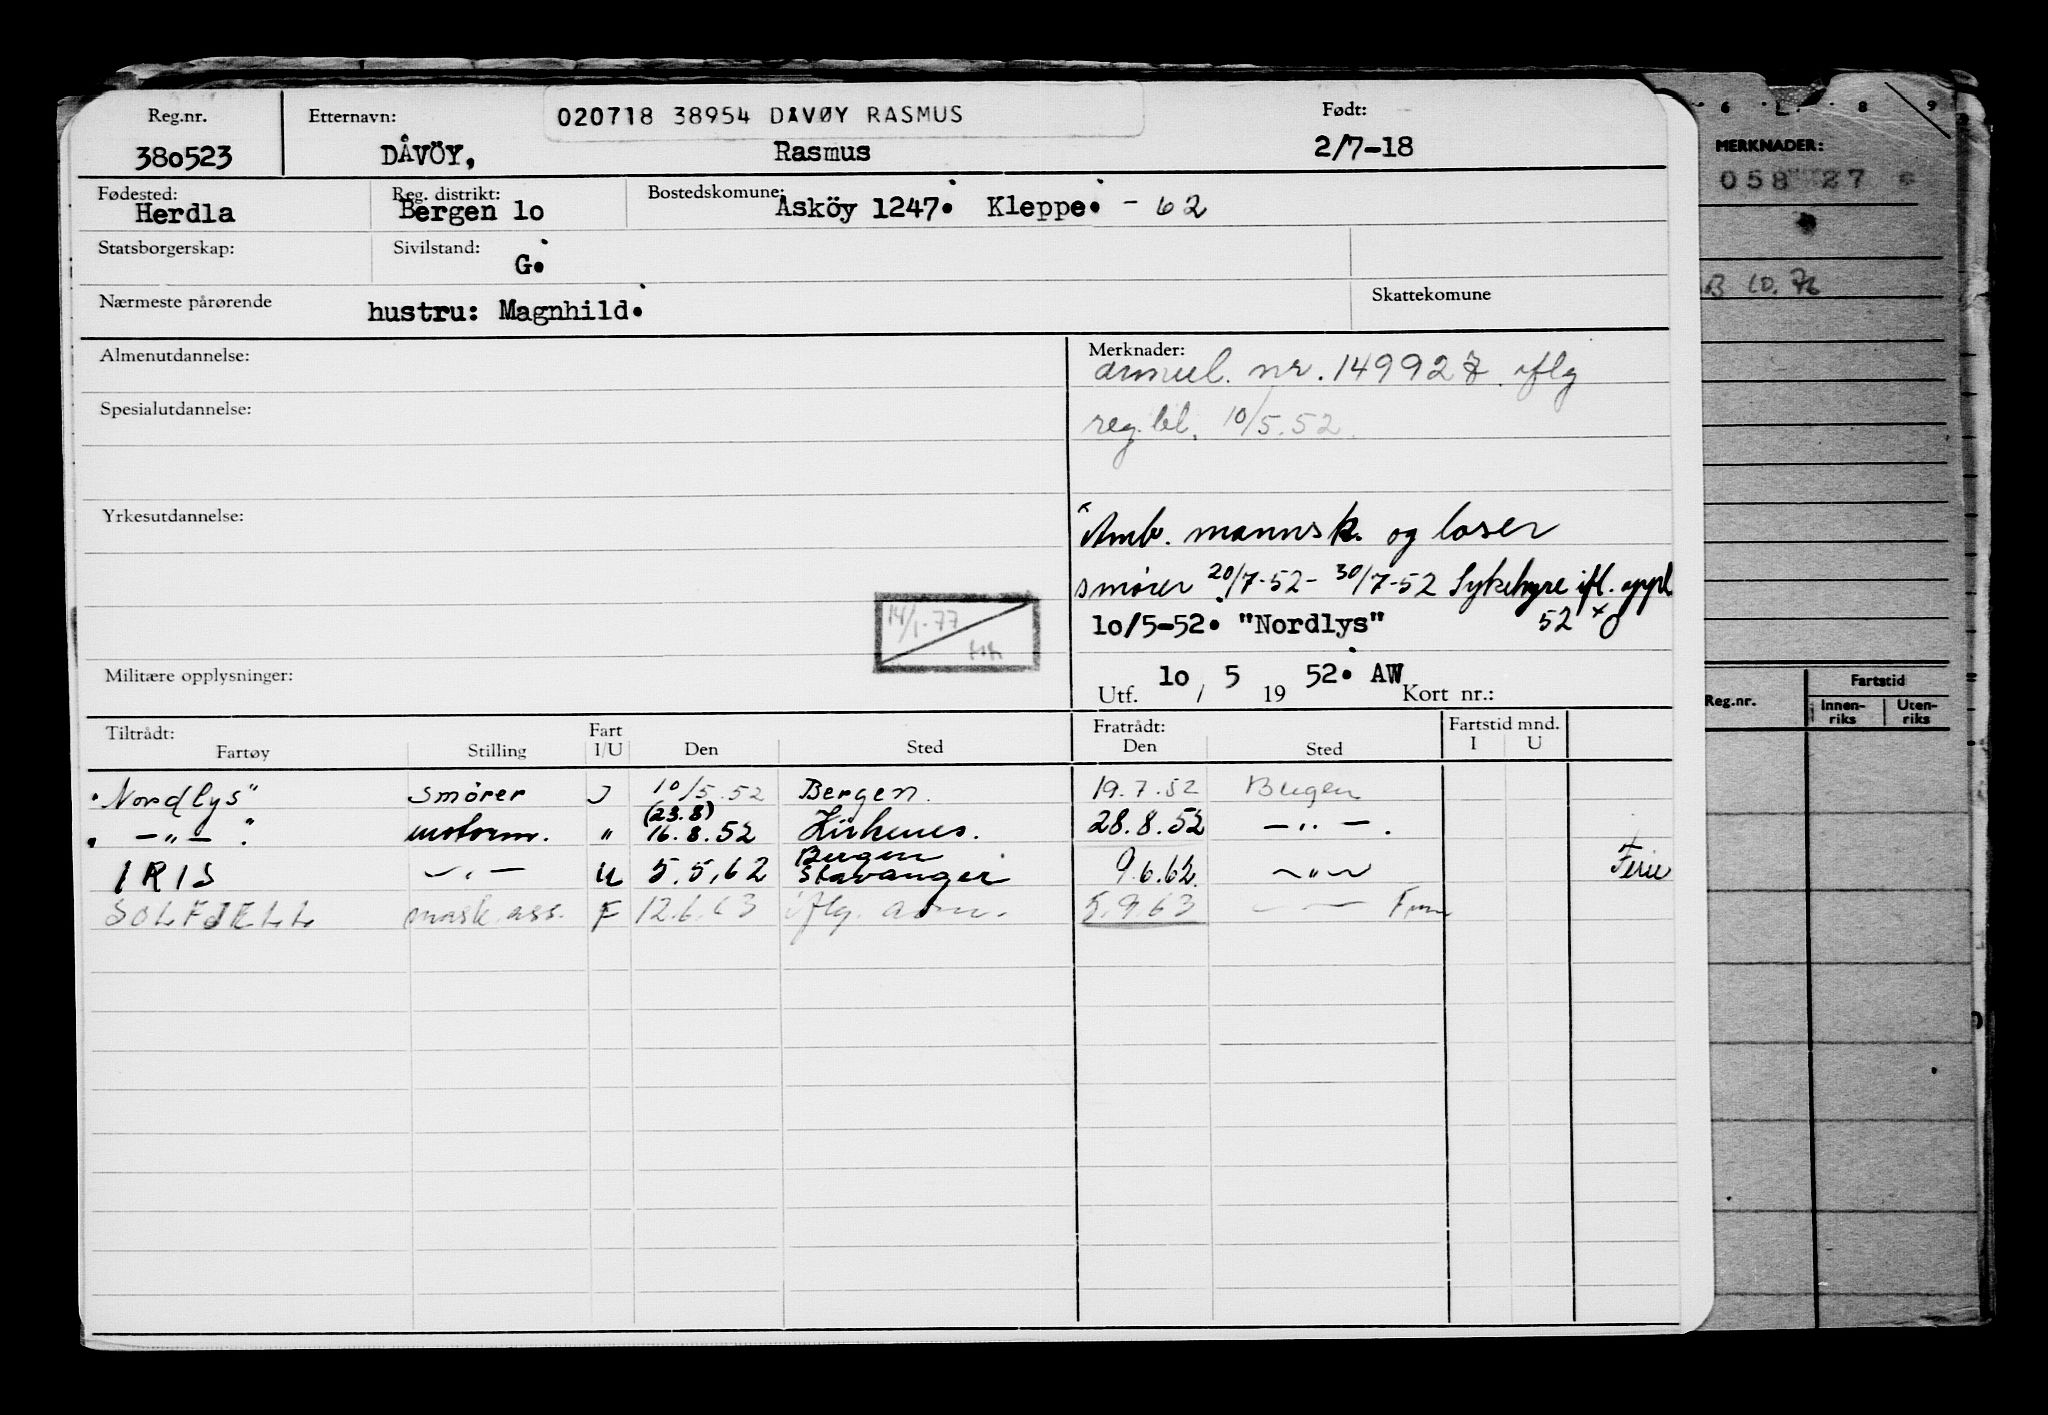 Reg.nr. Etternavn: 020718 38954 DAVØY RASMUS Født:
380523 DÅVÖY, Rasmus 2/7-18
Fødested: Reg. distrikt: Bostedskomune:
Herdla Bergen 10 Asköy 1247. Kleppe. - 62
Statsborgerskap: Sivilstand: G.
Nærmeste pårørende hustru: Magnhild. Skattekomune
Almenutdannelse: Merknader:
annul. nr. 149927 iflg
Spesialutdannelse: reg.bl. 10/5.52.
Yrkesutdannelse:
Amb. mannsk. og loser
smører 20/7-52- 30/7-52 Sykehyre ifl. oppl
14/1-77
10/5-52. "Nordlys" 52
Militære opplysninger:
Utf. 10 / 5 19 52. AW Kort nr.:
Tiltrådt: Fart Fratrådt: Fartstid mnd.
Fartøy Stilling I/U Den Sted Den Sted I U
"Nordlys" smører I 10/5.52 Bergen. 19.7.52 Bergen
(23.8)
" -"- " motorm. " 16.8.52 Kirkenes. 28.8.52 -"-.
Bergen
IRIS -"- U 5.5.62 Stavanger 9.6.62. -"- Ferie
SOLFJELL mask.ass. F 12.6.63 iflg. adm. 5.9.63
6 L. 8 9
MERKNADER:
058 27
B 10.76
Reg.nr. Fartstid
Innen-riks Uten-riks